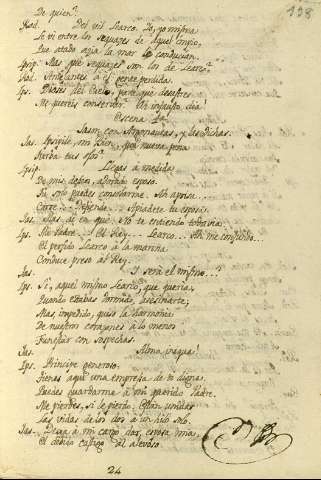 198
De quien?
Rod. Del vil Learco. Yo, yo misma
Le vi entre los sequazes de aquel impio,
Que atado azia la mar le conducian.
Ipsip. Mas que sequazes son los de Learco?
Rod. gente perdida.
Ips. Dioses del Cielo, para que desastres
Me quereis conservar. Un infausto dia
Escena
Jason con Argonautas, y las Dichas.
Jas. Ipsipile, mi bien, que nueva pena
turba tus ojos?
Ipsip. Llegas a medida
De mis deseos, adorado esposo.
Tu solo puedes consolarme. Ah aprisa...
Corre... Defiende... Apiadate tu esposa.
Jas. Mas di en que. No te entiendo todavia.
Ips. Mi Padre... El Rey... Learco... Ah me confundo...
El perfido Learco a la marina
Conduce preso al Rey.
Jas. Y será el mismo...?
Ips. Si, aquel mismo Learco, que queria,
Quando estabas dormido, asesinarte;
Mas, impedido, quiso la harmonia
De nuestros corazones a lo menos
Funestar con sospechas.
Jas. Alma iniqua!
Ips. Principe generoso:
Tienes aqui una empresa de ti digna.
Puedes guardarme a mi querido Padre.
Me pierdes, si le pierdo. Estan unidas
Las vidas de los dos a un hilo solo.
Jas. Dexa a mi cargo dar, esposa mia,
El debido castigo al alevoso.
24